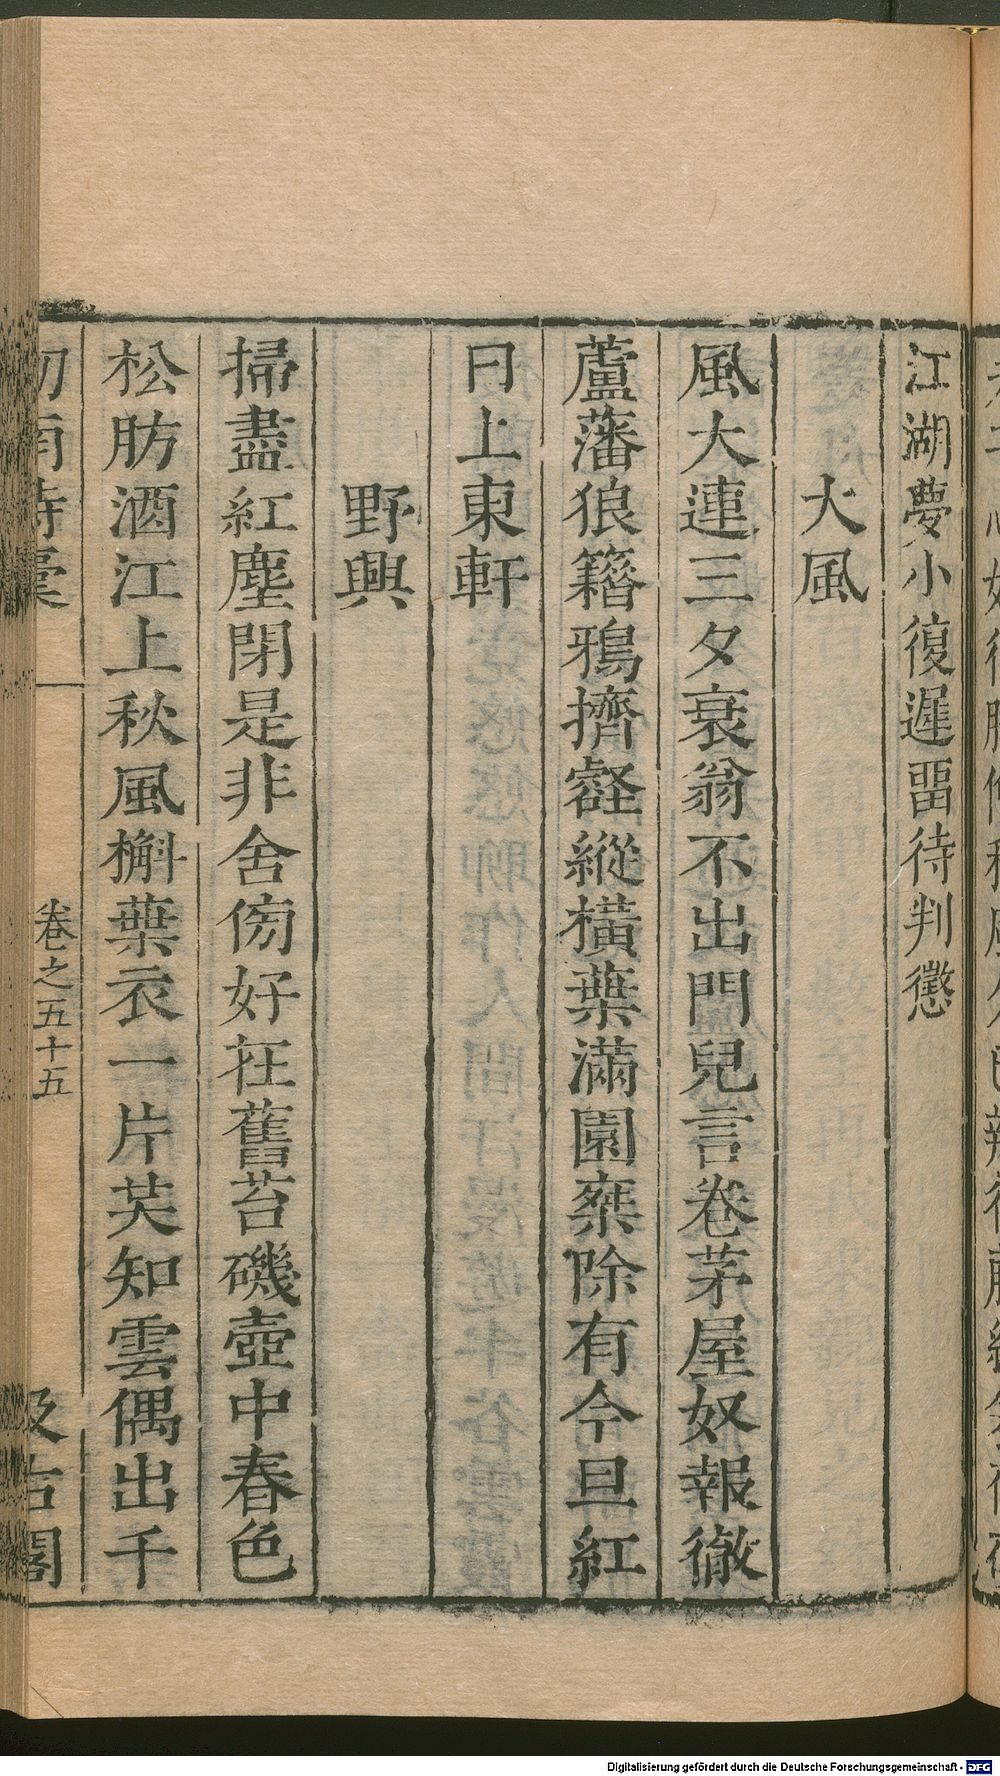 江湖夢小復遲畱待判懲
大風
風大連三夕衰翁不出門兒言卷茅屋奴報徹
蘆藩狼籍鴉擠壑縱橫葉滿園糜除有今旦紅
日上東軒
野興
掃盡紅塵閉是非舍傍好在舊苔磯壺中春色
松肪酒江上秋風槲葉衣一片芙知雲偶出千
卷之五十五
汲古閣
Digitalisierung gefördert durch die Deutsche Forschungsgemeinschaft - DFG